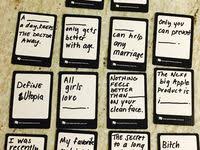 A ____
a day, keeps
THE DOCTOR
AWAY.
____
only gets
better
with age.
____
can help
any
marriage
Only you
can prevent
____.
Define
Utopia
All
girls
love
____.
NOTHING
FEELS
BETTER
THAN
____
ON YOUR
clean face.
The Next
big Apple
Product is
i____.
I was
recently
My favorite
The secret
to a long
Bitch